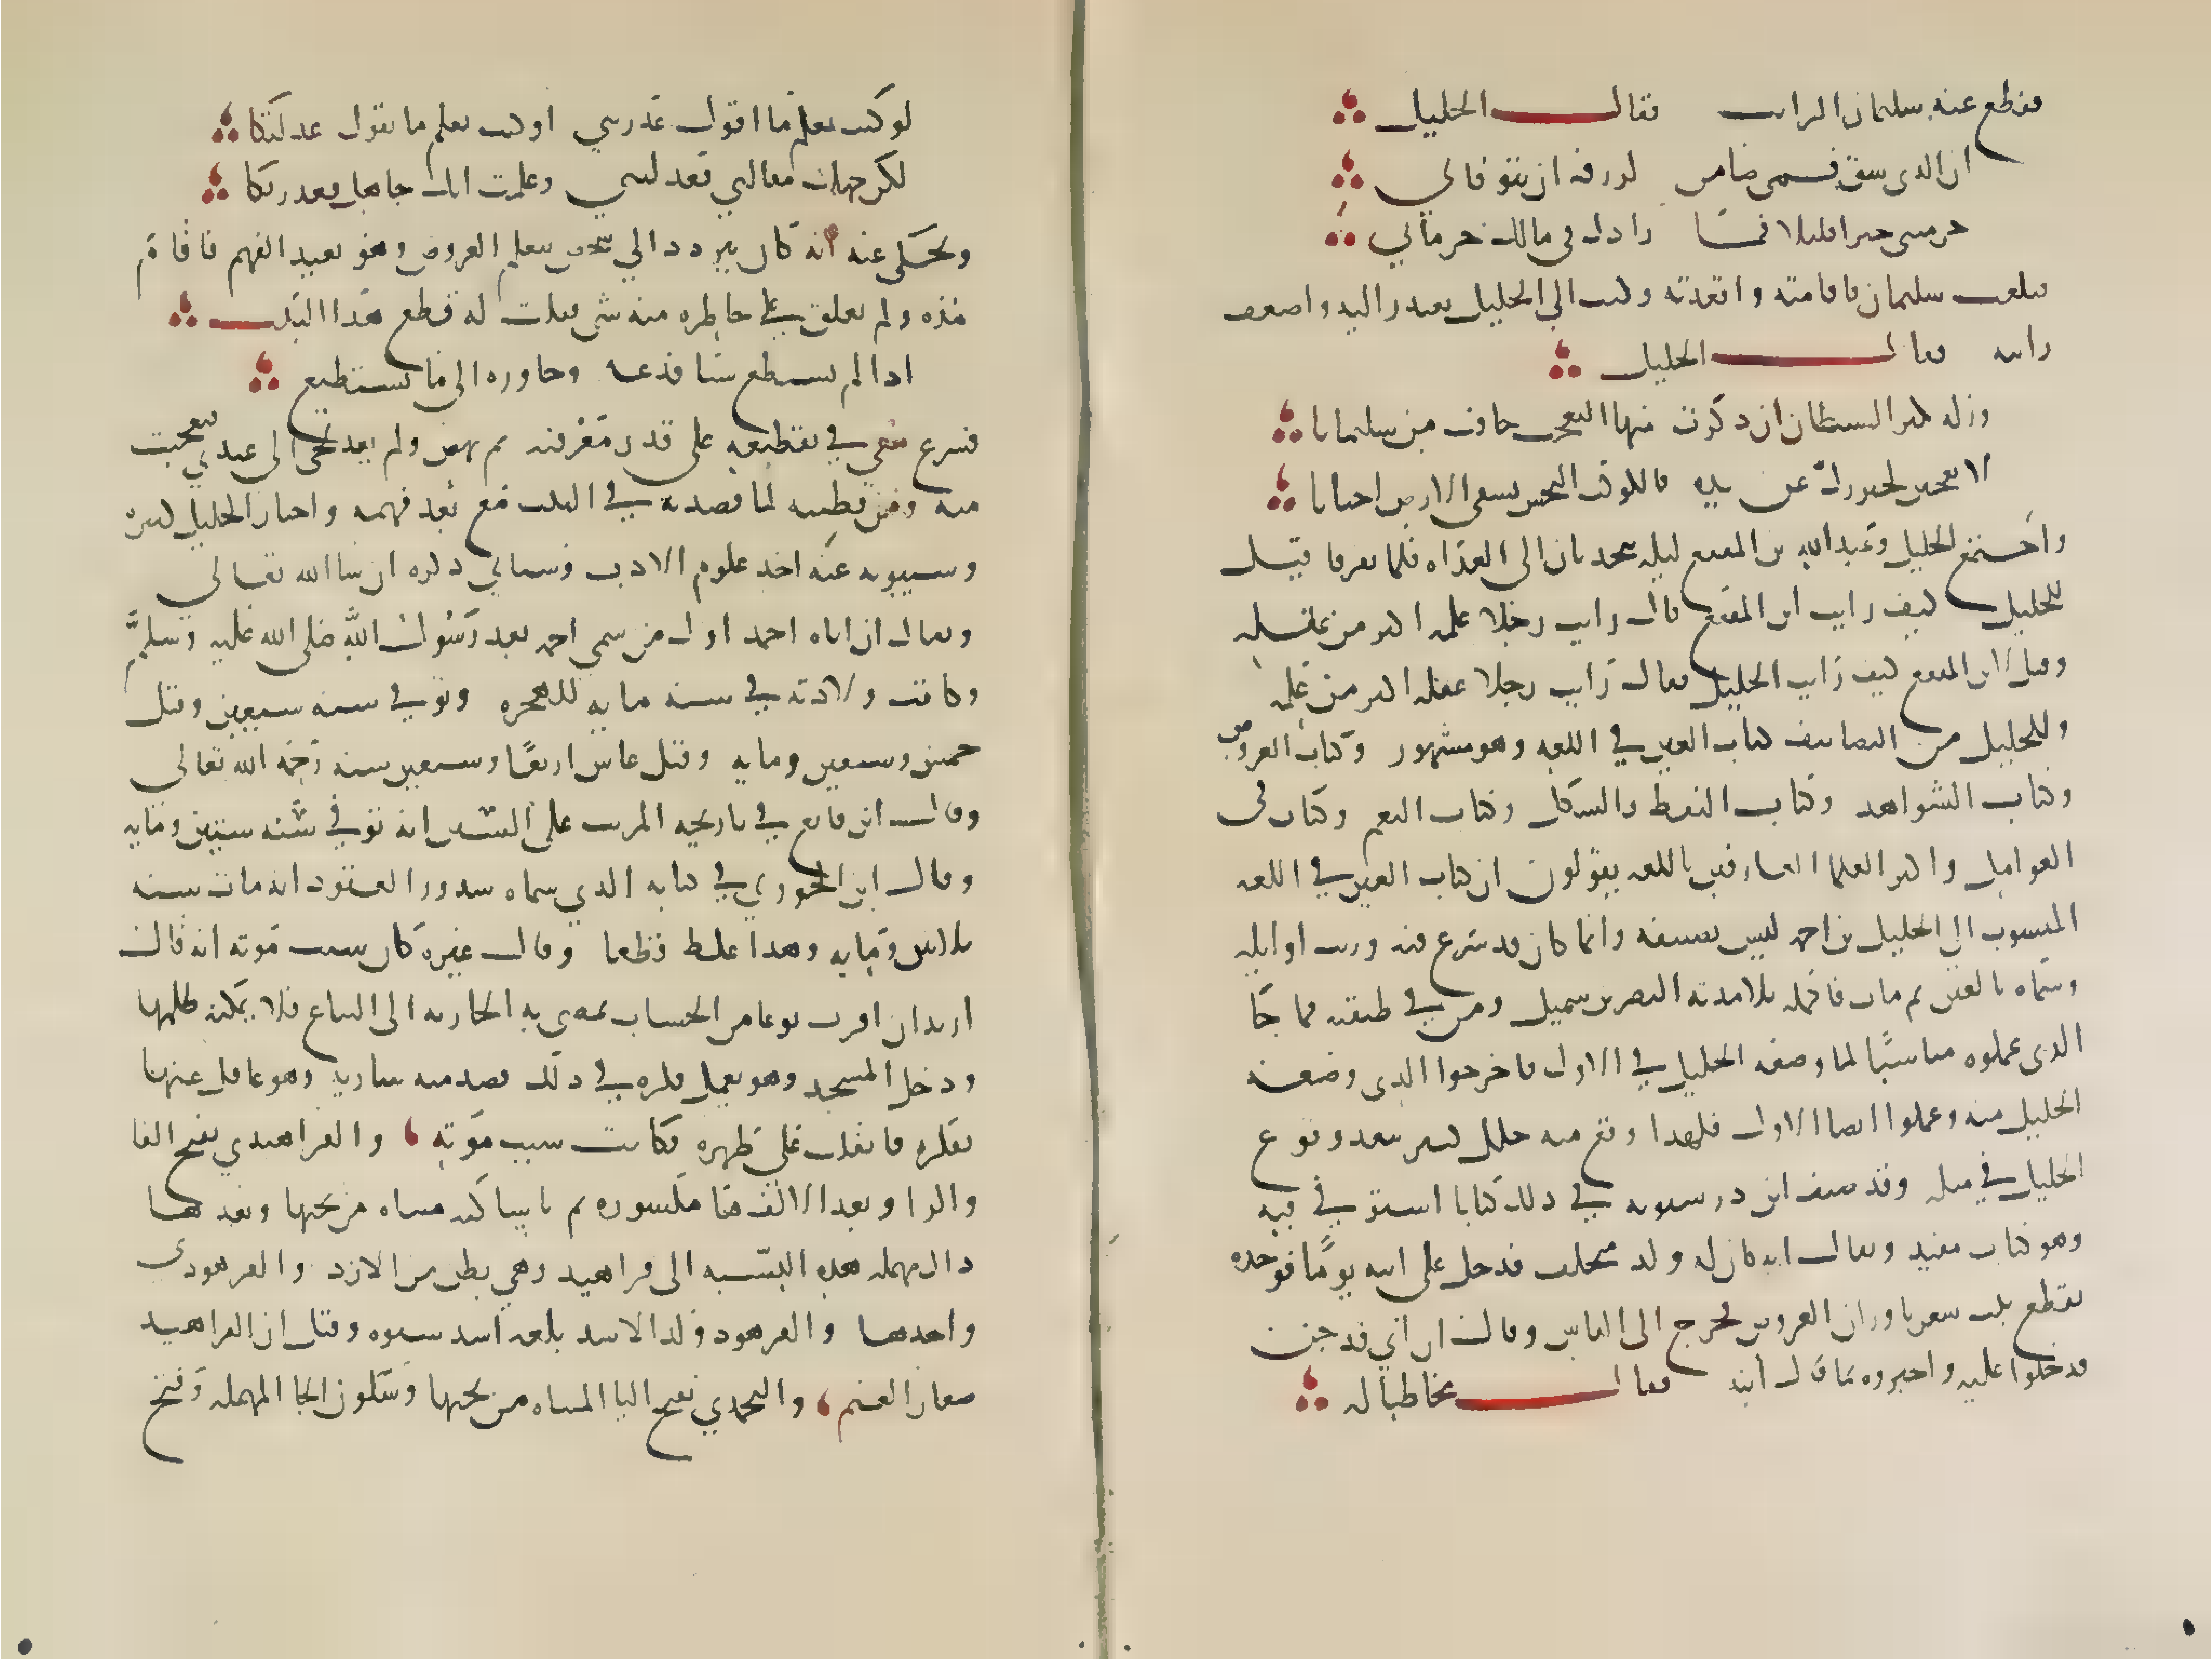 فقطع عنه سليمان الراتب فقال الخليل
ان الذي شق فمي ضامن لي الرزق حتى يتوفاني
حرمتني خيرا قليلا فما زادك في مالك حرماني
فبلغت سليمان فاقامته واقعدته وكتب الي الخليل يعتذر اليه واضعف
راتبه فقال الخليل
وزلة يكثر الشيطان ان ذكرت منها التعجب جاءت من سليمانا
لا تعجبن لخير زل عن يده فالكوكب النحس يسقي الارض احيانا
واجتمع الخليل وعبد الله بن المقفع ليلة يتحدثان الى الغداه فلما تفرقا قيل
للخليل كيف رايت ابن المقفع قال رايت رجلا علمه اكثر من عقله
وقيل لابن المقفع كيف رايت الخليل فقال رايت رجلا عقله اكثر من علمه
وللخليل من التصانيف كتاب العين في اللغه وهو مشهور وكتاب العروض
وكتاب الشواهد وكتاب النقط والشكل وكتاب النغم وكتاب في
العوامل واكثر العلما العارفين باللغه يقولون ان كتاب العين في اللغه
المنسوب الي الخليل بن احمد ليس تصنيفه وانما كان قد شرع فيه ورتب اوايله
وسماه بالعين ثم مات فاكمله تلامذته النضر بن شميل ومن في طبقته فما جا
الذي عملوه مناسبا لما وضعه الخليل في الاول فاخرجوا الذي وضعه
الخليل منه وعملوا ايضا الاول فلهذا وقع فيه خلل كثير يبعد وقوع
الخليل في مثله وقد صنف ابن درستويه في ذلك كتابا استوفي فيه
وهو كتاب مفيد ويقال انه كان له ولد متخلف فدخل على ابيه يوما فوجده
يقطع بيت شعر باوزان العروض فخرج الى الناس وقال ان ابي قد جن
فدخلوا عليه واخبروه بما قال ابنه فقال مخاطبا له
لو كنت تعلم ما اقول عذرتني او كنت تعلم ما تقول عذلتكا
لكن جهلت مقالتي فعذلتني وعلمت انك جاهل فعذرتكا
ويحكى عنه انه كان يتردد الي شخص يتعلم العروض وهو بعيد الفهم فاقام
مده ولم يعلق على خاطره منه شي فقلت له قطع هذا البيت
اذا لم تستطع شيا فدعه وجاوزه الى ما تستطيع
فشرع معي في تقطيعه على قدر معرفته ثم نهض ولم يعد يجي الى عندي فعجبت
منه ومن فطنته لما قصدته في البيت مع بعد فهمه واخبار الخليل كثيره
وسيبويه عنه اخذ علوم الادب وسياتي ذكره ان شا الله تعالي
ويقال ان اباه احمد اول من سمي احمد بعد رسول الله صلى الله عليه وسلم
وكانت ولادته في سنه مايه للهجره وتوفي سنه سبعين وقيل
خمس وسبعين ومايه وقيل عاش اربعا وسبعين سنه رحمه الله تعالي
وقال ابن قانع في تاريخه المرتب على السنين انه توفي سنه ستين ومايه
وقال ابن الجوزي في كتابه الذي سماه شذور العقود انه مات سنه
ثلاثين ومايه وهذا غلط قطعا وقال غيره كان سبب موته انه قال
اريد ان اقرب نوعا من الحساب تمضي به الجاريه الى البياع فلا يمكنه ظلمها
ودخل المسجد وهو يعمل فكره في ذلك فصدمته ساريه وهو غافل عنها
بفكره فانقلب علي ظهره فكانت سبب موته والفراهيدي بفتح الفا
والرا وبعد الالف ها مكسوره ثم يا ساكنه مثناه من تحتها وبعدها
دال مهمله هذه النسبه الى فراهيد وهي بطن من الازد والفرهودي
واحدها والفرهود ولد الاسد بلغه اسد شنوه وقيل ان الفراهيد
صغار الغنم واليحمدي بفتح اليا المثناه من تحتها وسكون الحا المهمله وفتح